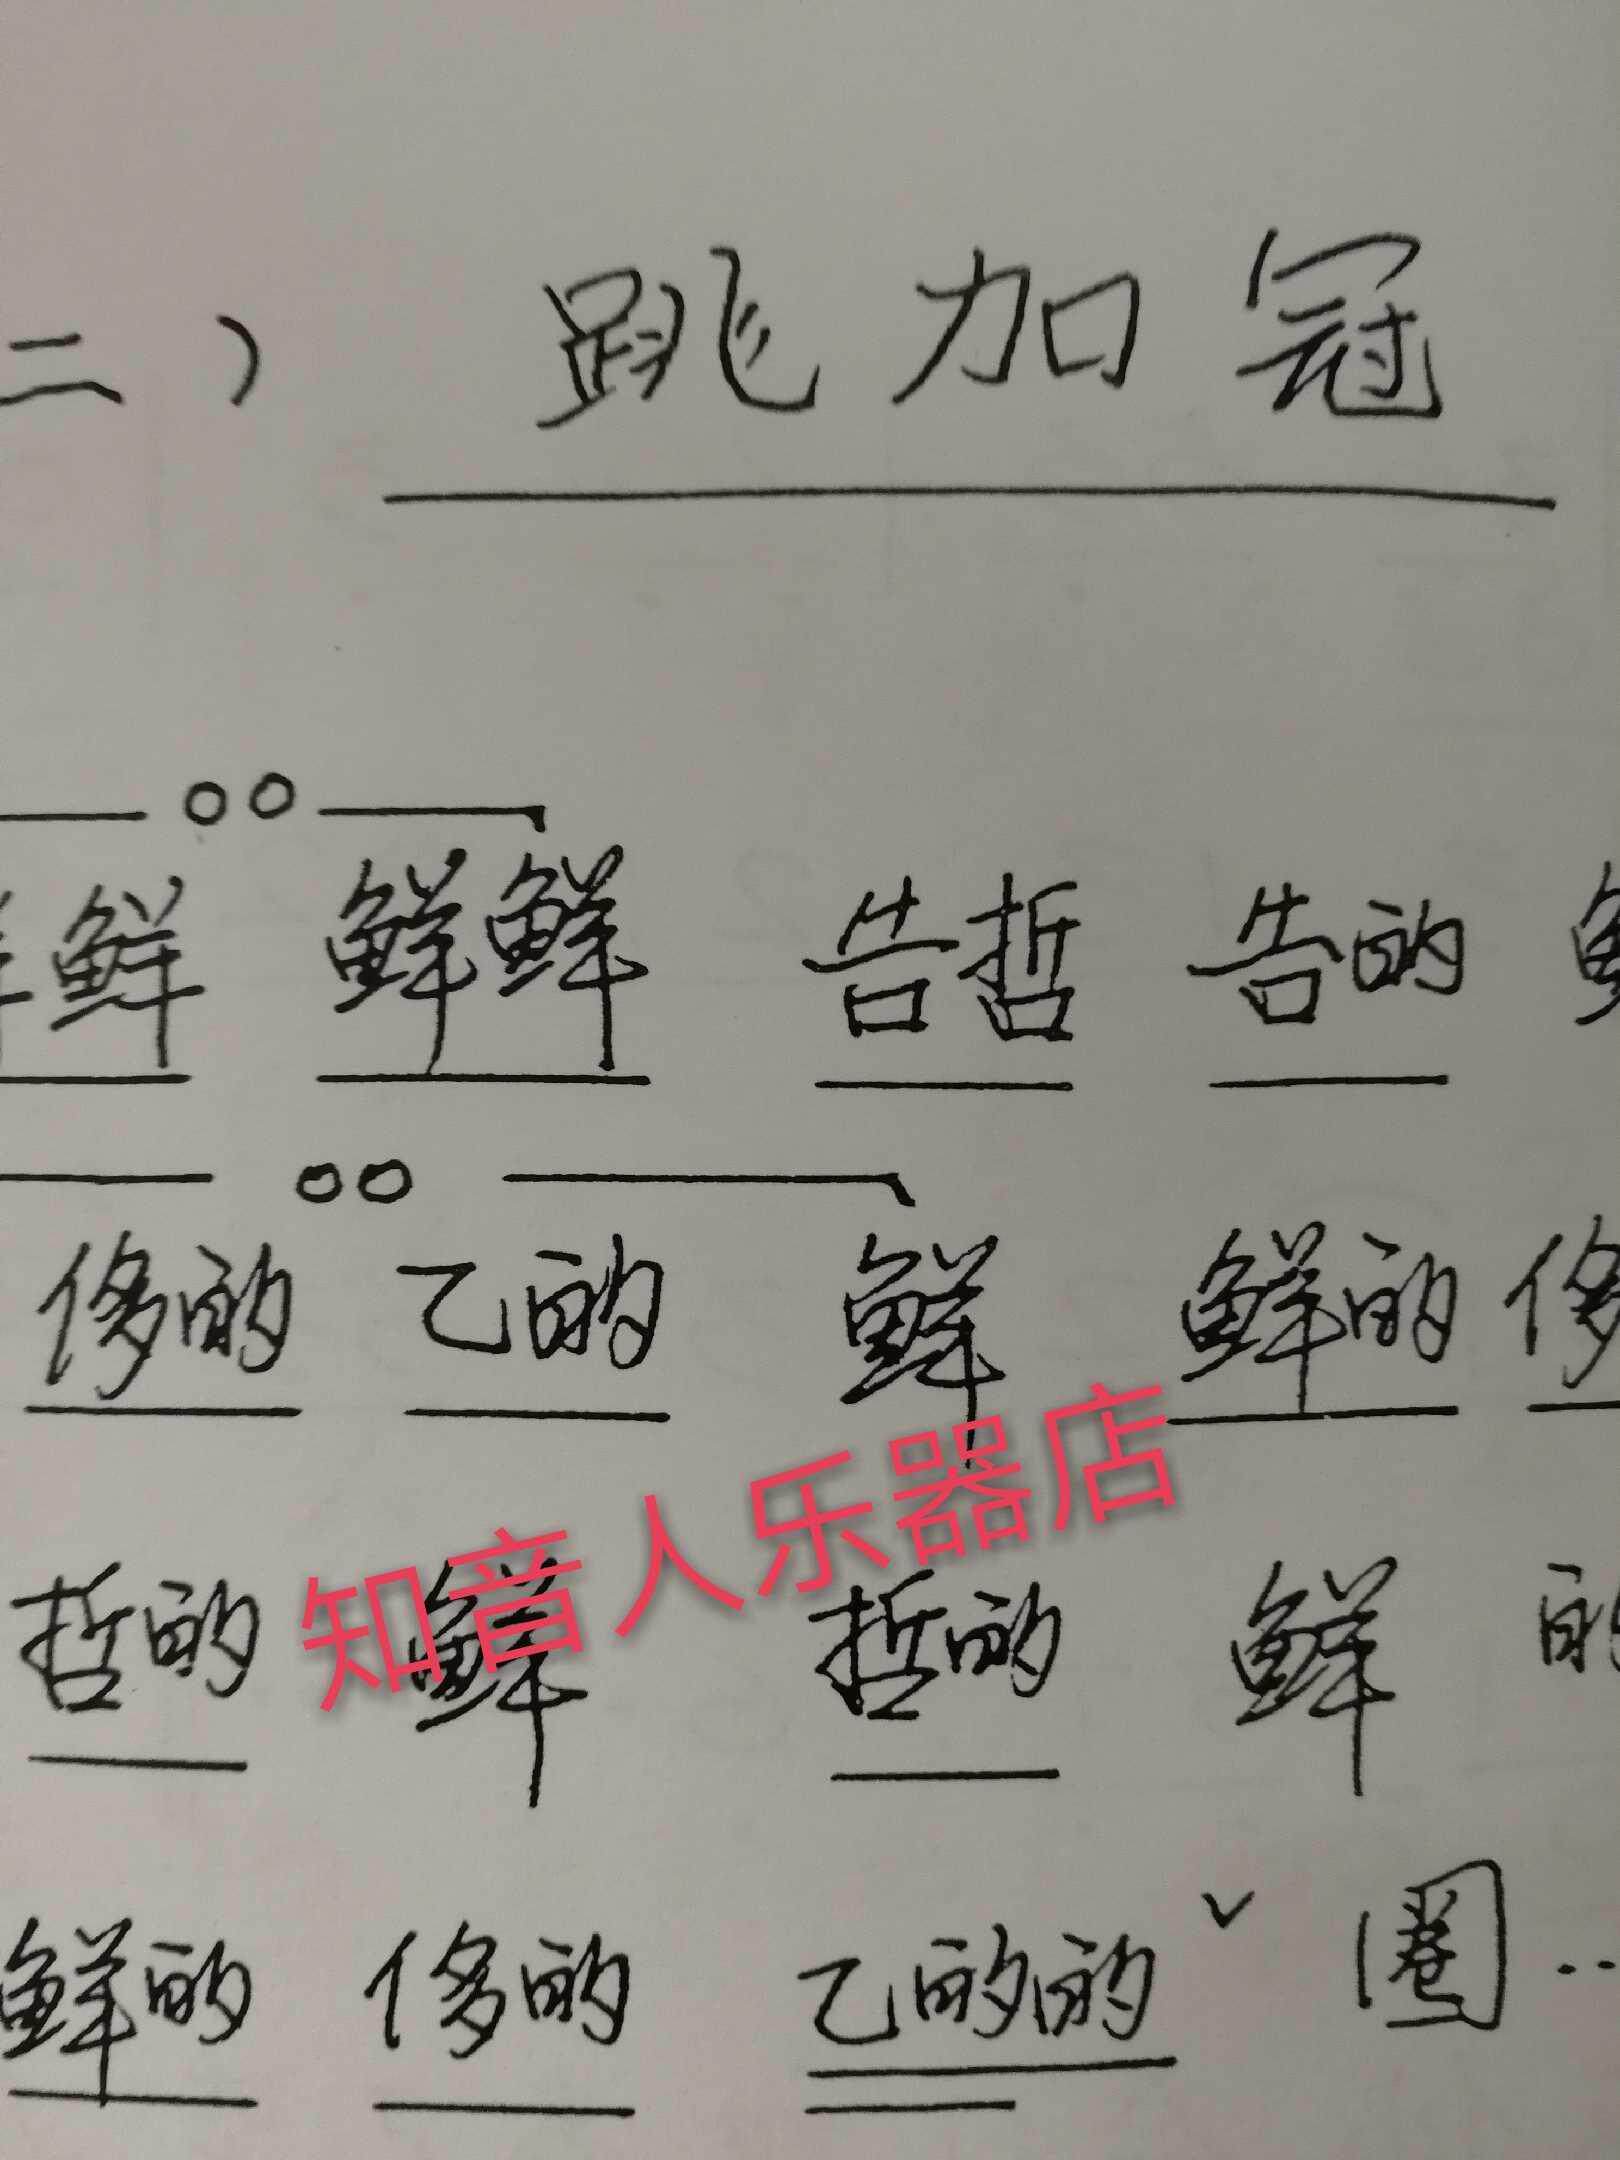 二） 跳加冠
鲜 鲜鲜 告哲 告的
侈的 乙的 鲜 鲜的 侈
知音人乐器店
哲的 鲜 哲的 鲜 的
鲜的 侈的 乙的的 ˅ 圈 ..